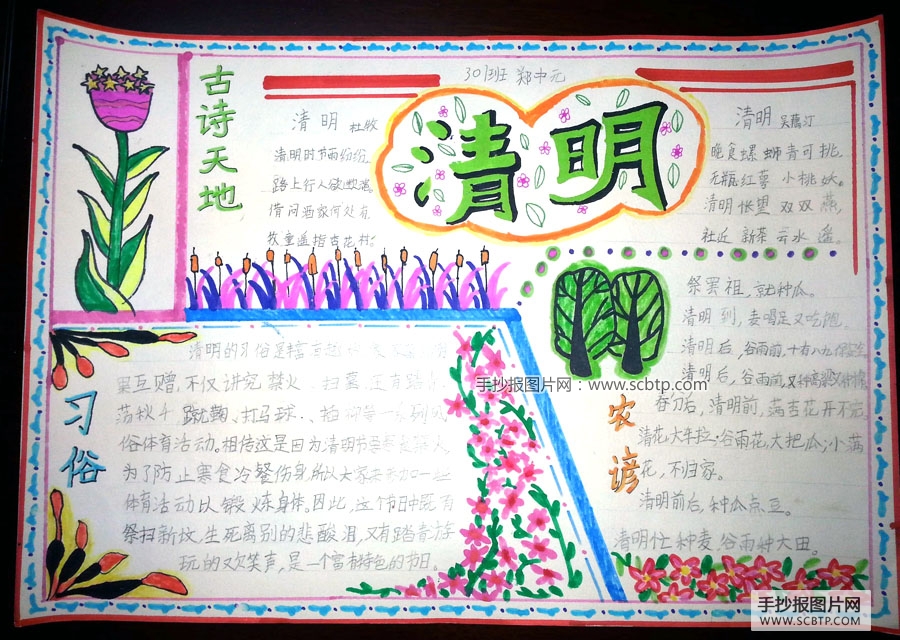 301班 郑中元
古诗天地
清明 杜牧
清明时节雨纷纷,
路上行人欲断魂。
借问酒家何处有
牧童遥指杏花村。
清明
清明 吴藕汀
晚食螺蛳青可挑,
无瓶红萼小桃妖。
清明怅望双双燕,
社近新茶云水遥。
习俗
清明的习俗是丰富
互赠,不仅讲究禁火、扫墓,还有踏
荡秋千、蹴鞠、打马球、
俗体育活动。相传这是因为清明节
为了防止寒食冷餐伤身,所以大家来参加一些
体育活动以锻炼身体。因此,这个节日中既有
祭扫新坟,生死离别的悲酸泪,又有踏青游
玩的欢笑声,是一个富有特色的节日。
农谚
祭罢祖,就种瓜。
清明到,麦喝足又吃饱。
清明后,谷雨前,十有八九
清明后,谷雨前,又种高粱又种棉
春分后,清明前,满杏花开不完
清花大车拉;谷雨花大把瓜;小满
花,不归家。
清明前后,种瓜点豆。
清明忙种麦,谷雨种大田。
手抄报图片网:www.scbtp.com
手抄报图片网
WWW.SCBTP.COM